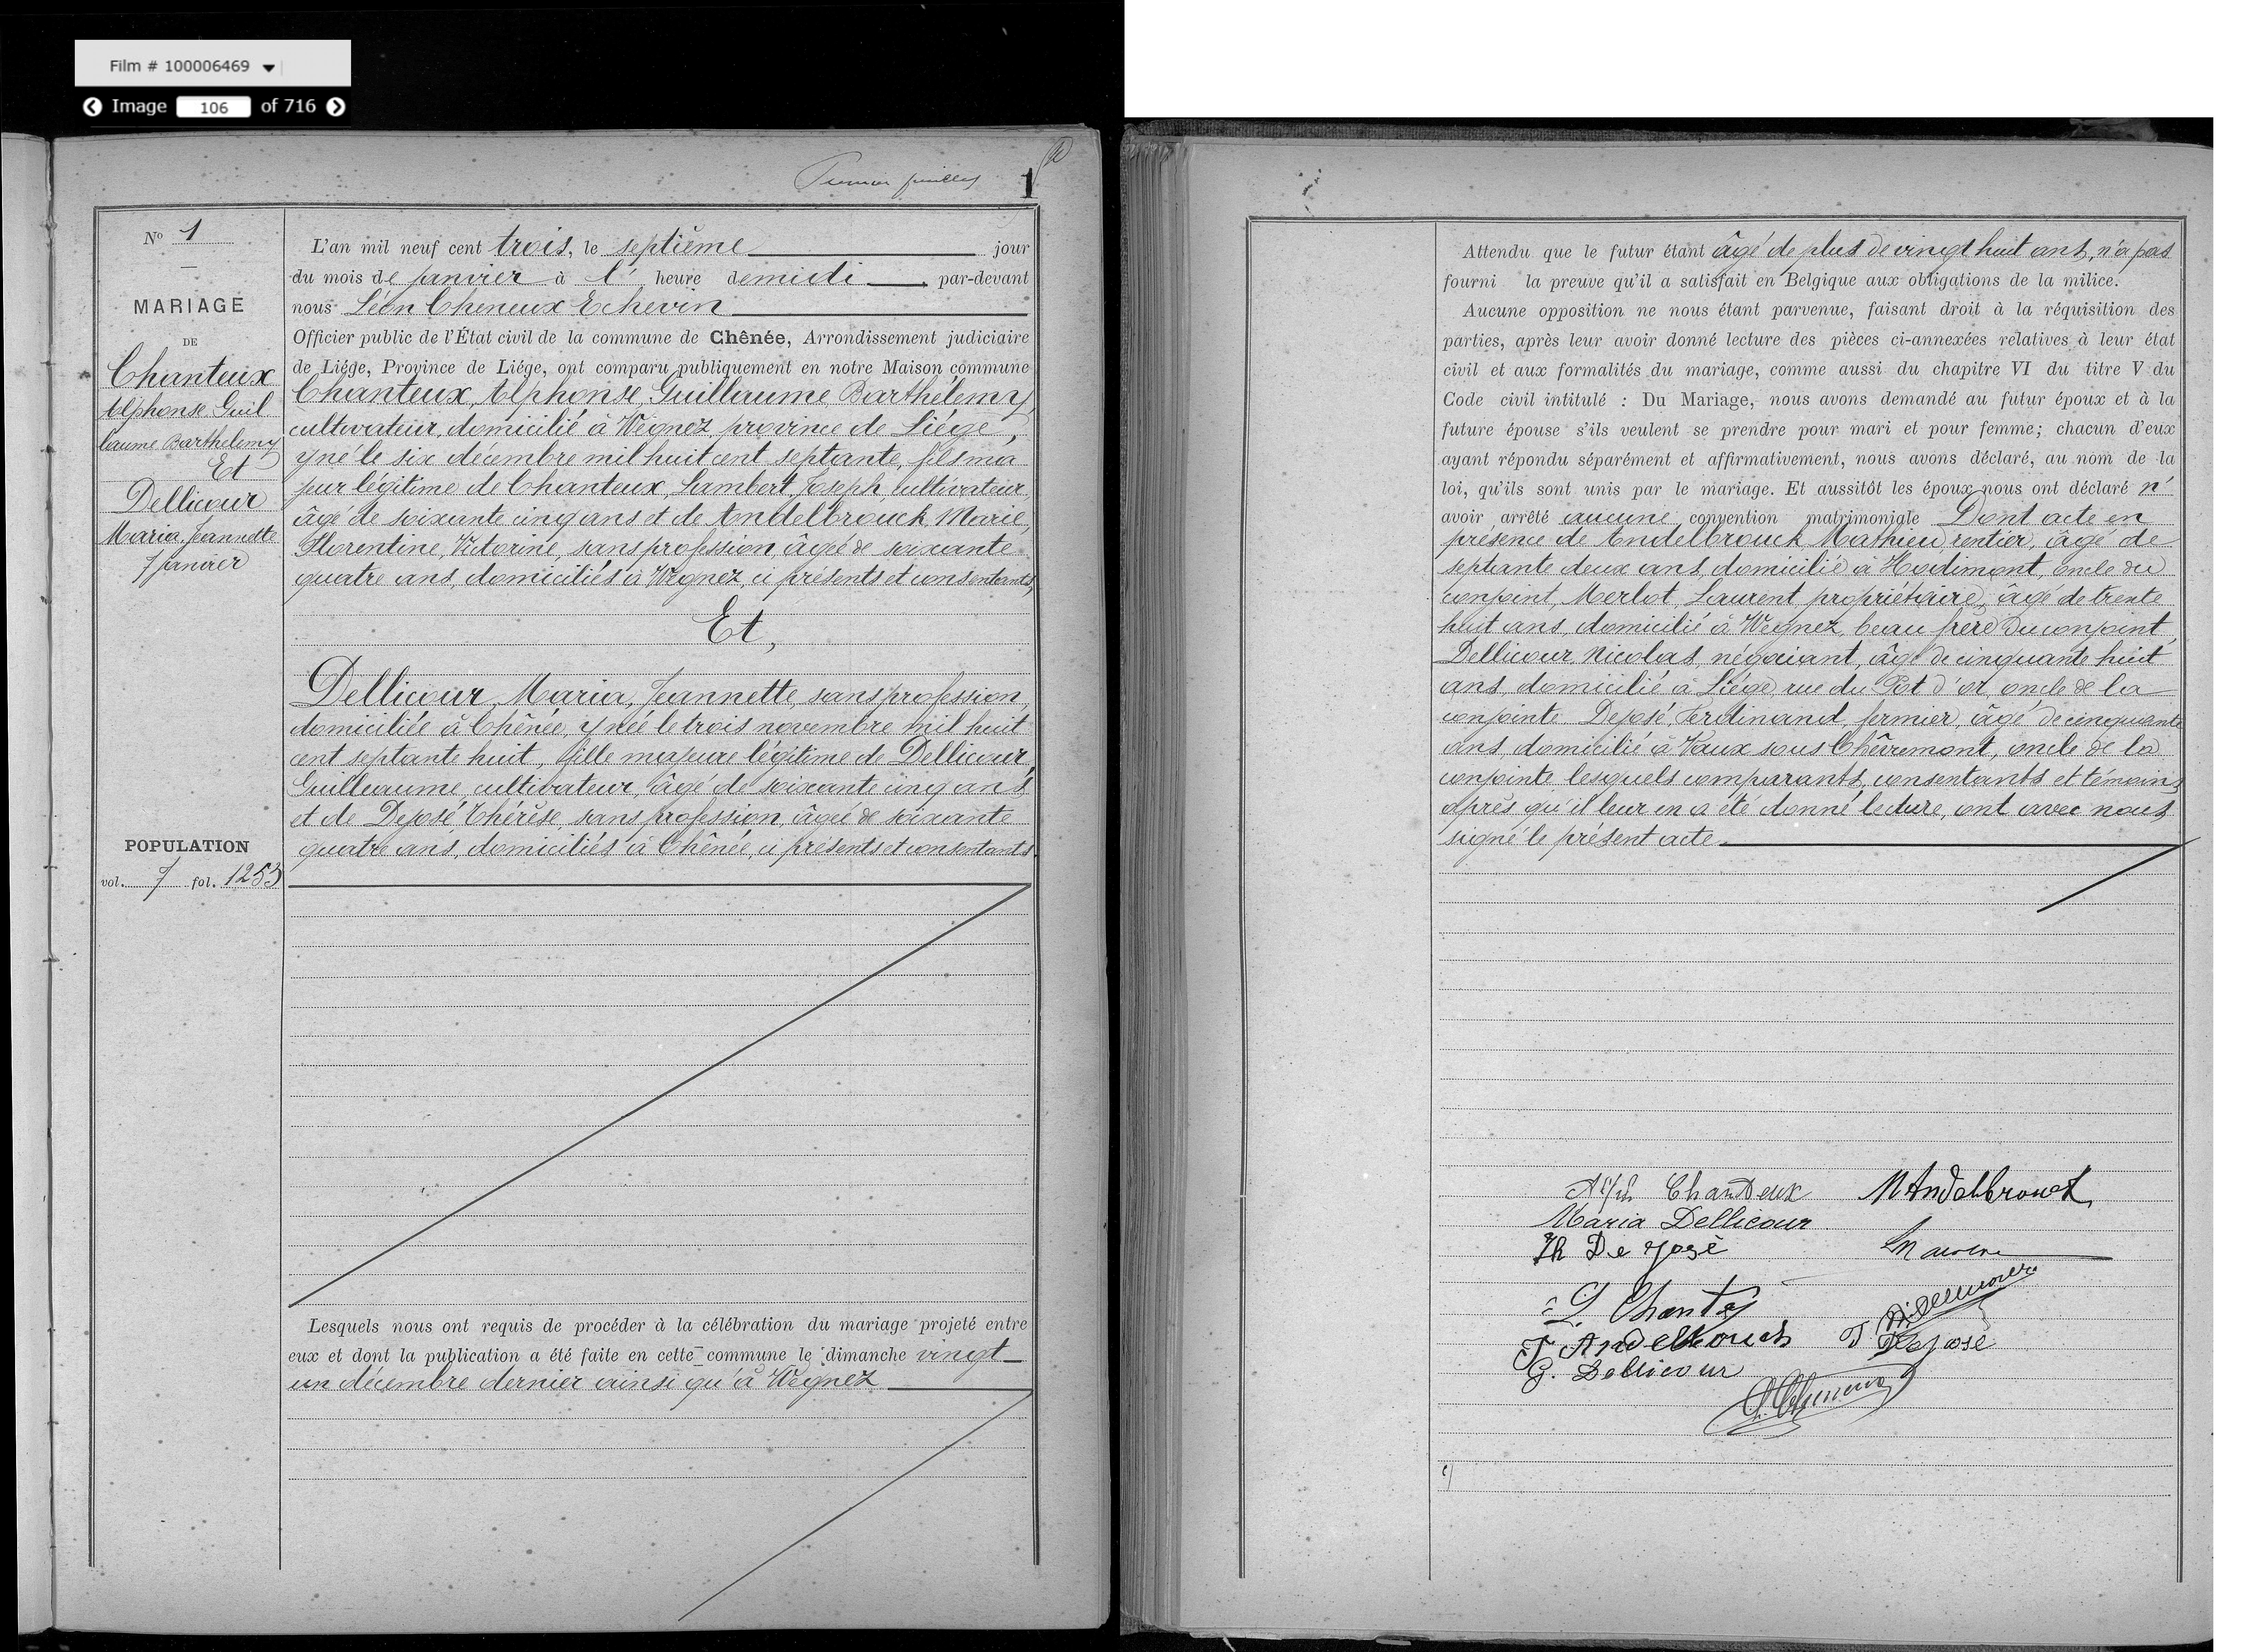 Film # 100006469
Image 106 of 716
1
Nº 1
MARIAGE
DE
Chanteux
Alphonse Guil
laume Barthelemy
Et
Dellicour
Maria Jeannette
7 janvier
POPULATION
vol. 7 fol. 1253
L'an mil neuf cent trois, le septième jour
du mois de janvier à l' heure de midi par-devant
nous Léon Cheneux Echevin
Officier public de l'État civil de la commune de Chênée, Arrondissement judiciaire
de Liége, Province de Liége, ont comparu publiquement en notre Maison commune
Chanteux, Alphonse, Guillaume, Barthélemy,
cultivateur, domicilié à Wegnez, province de Liége,
y né le six décembre mil huit cent septante, fils ma
jeur légitime de Chanteux, Lambert, Joseph, cultivateur,
âgé de soixante cinq ans et de Andelbrouck, Marie,
Florentine, Victorine, sans profession, âgée de soixante
quatre ans, domiciliés à Wegnez, ci présents et consentants,
Et,
Dellicour, Maria, Jeannette, sans profession,
domiciliée à Chênée, y née le trois novembre mil huit
cent septante huit, fille majeure légitime de Dellicour,
Guillaume, cultivateur, âgé de soixante cinq ans
et de Dejosé, Thérèse, sans profession, âgée de soixante
quatre ans, domiciliés à Chênée, ci présents et consentants.
Lesquels nous ont requis de procéder à la célébration du mariage projeté entre
eux et dont la publication a été faite en cette commune le dimanche vingt
un décembre dernier ainsi qu'à Wegnez
Attendu que le futur étant âgé de plus de vingt huit ans, n'a pas
fourni la preuve qu'il a satisfait en Belgique aux obligations de la milice.
Aucune opposition ne nous étant parvenue, faisant droit à la réquisition des
parties, après leur avoir donné lecture des pièces ci-annexées relatives à leur état
civil et aux formalités du mariage, comme aussi du chapitre VI du titre V du
Code civil intitulé : Du Mariage, nous avons demandé au futur époux et à la
future épouse s'ils veulent se prendre pour mari et pour femme; chacun d'eux
ayant répondu séparément et affirmativement, nous avons déclaré, au nom de la
loi, qu'ils sont unis par le mariage. Et aussitôt les époux nous ont déclaré n'
avoir arrêté aucune convention matrimoniale Dont acte en
présence de Andelbrouck, Mathieu, rentier, âgé de
septante deux ans, domicilié à Hodimont, oncle du
conjoint, Merlot, Laurent, propriétaire, âgé de trente
huit ans, domicilié à Wegnez, beau frère du conjoint,
Dellicour, Nicolas, négociant, âgé de cinquante huit
ans, domicilié à Liége, rue du Pot d'or, oncle de la
conjointe Dejosé, Ferdinand, fermier, âgé de cinquante
ans, domicilié à Vaux sous Chèvremont, oncle de la
conjointe lesquels comparants, consentants et témoins
après qu'il leur en a été donné lecture, ont avec nous
signé le présent acte.
Chanteux M Andelbrouck
Maria Dellicour
Th De José
F. Andelbrouck F. Dejosé
G. Dellicour